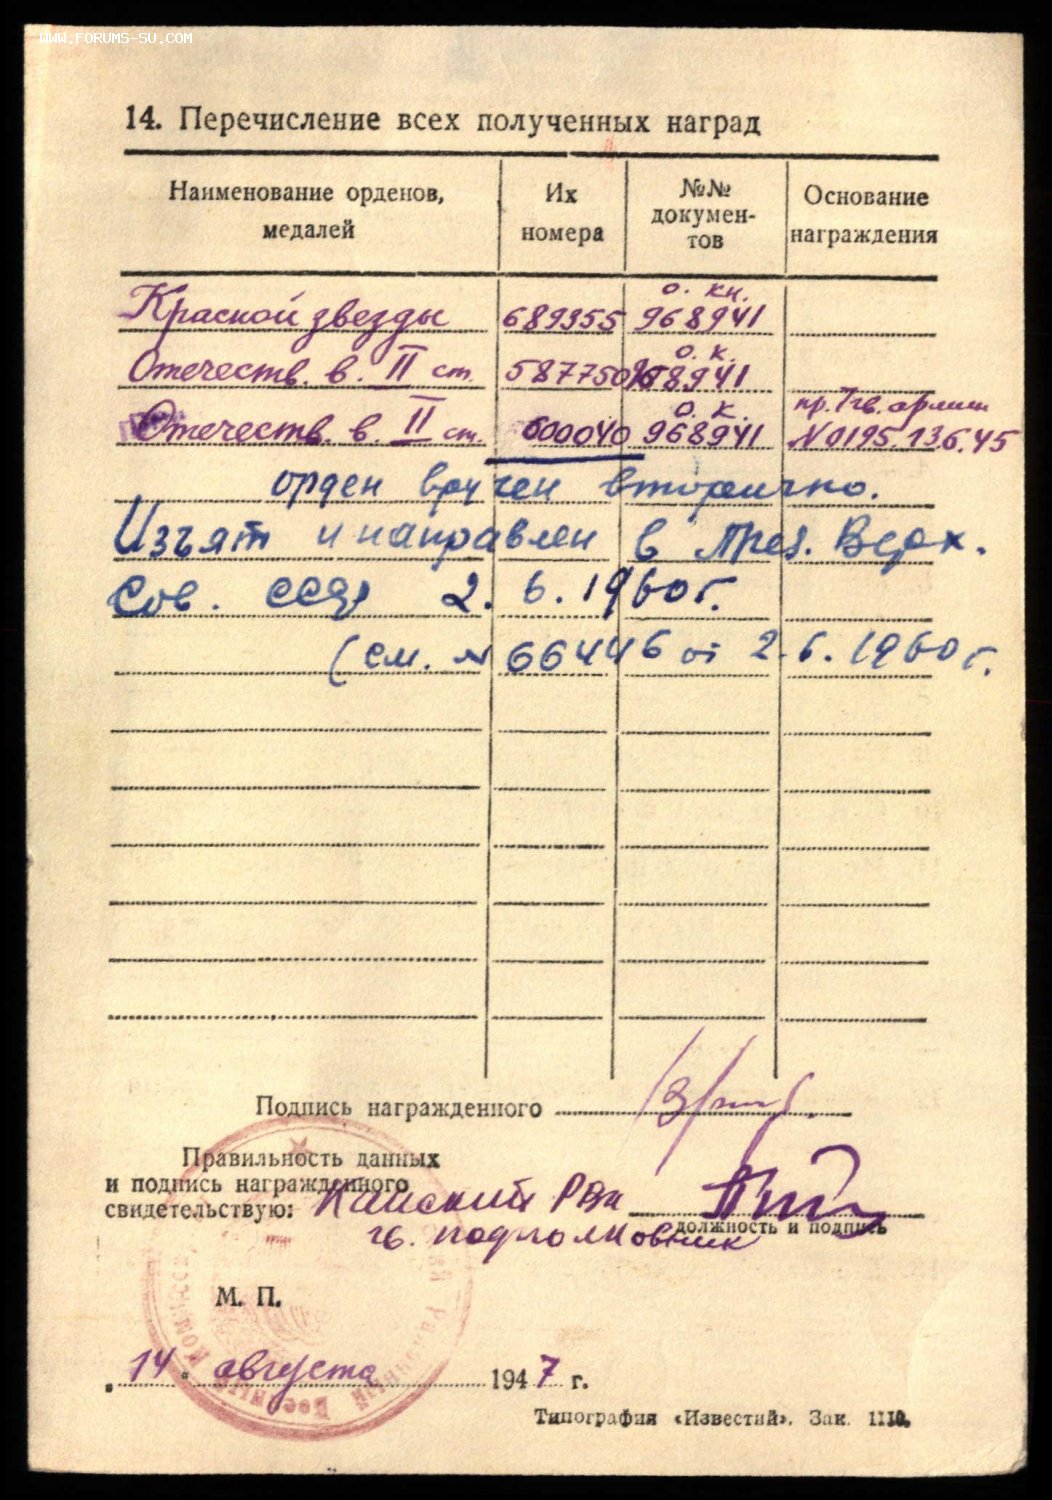 WWW.FORUMS-SU.COM
14. Перечисление всех полученных наград
Наименование орденов, медалей
Их номера
№№ докумен-тов
Основание награждения
о. кн.
Красной звезды 689355 968941
о. к.
Отечеств. в. II ст. 587750 968941
о. к. пр. 7 гв. армии
Отечеств. в. II ст. 600040 968941 N 0195 13.6.45
орден вручен вторично.
Изъят и направлен в През. Верх.
Сов. СССР 2. 6. 1960 г.
(см. № 66446 от 2.6.1960 г.
Подпись награжденного
Правильность данных
и подпись награжденного
свидетельствую: РВк
должность и подпись
гв. подполковник
М. П.
„14“ августа 1947 г.
Типография «Известий». Зак. 1110.